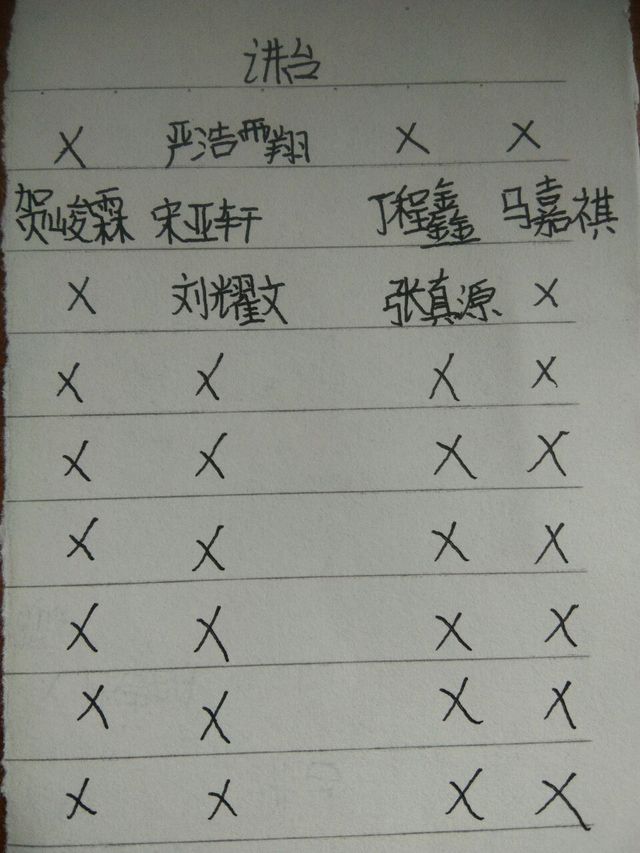 讲台
X 严浩翔 X X
贺峻霖 宋亚轩 丁程鑫 马嘉祺
X 刘耀文 张真源 X
X X X X
X X X X
X X X X
X X X X
X X X X
X X X X